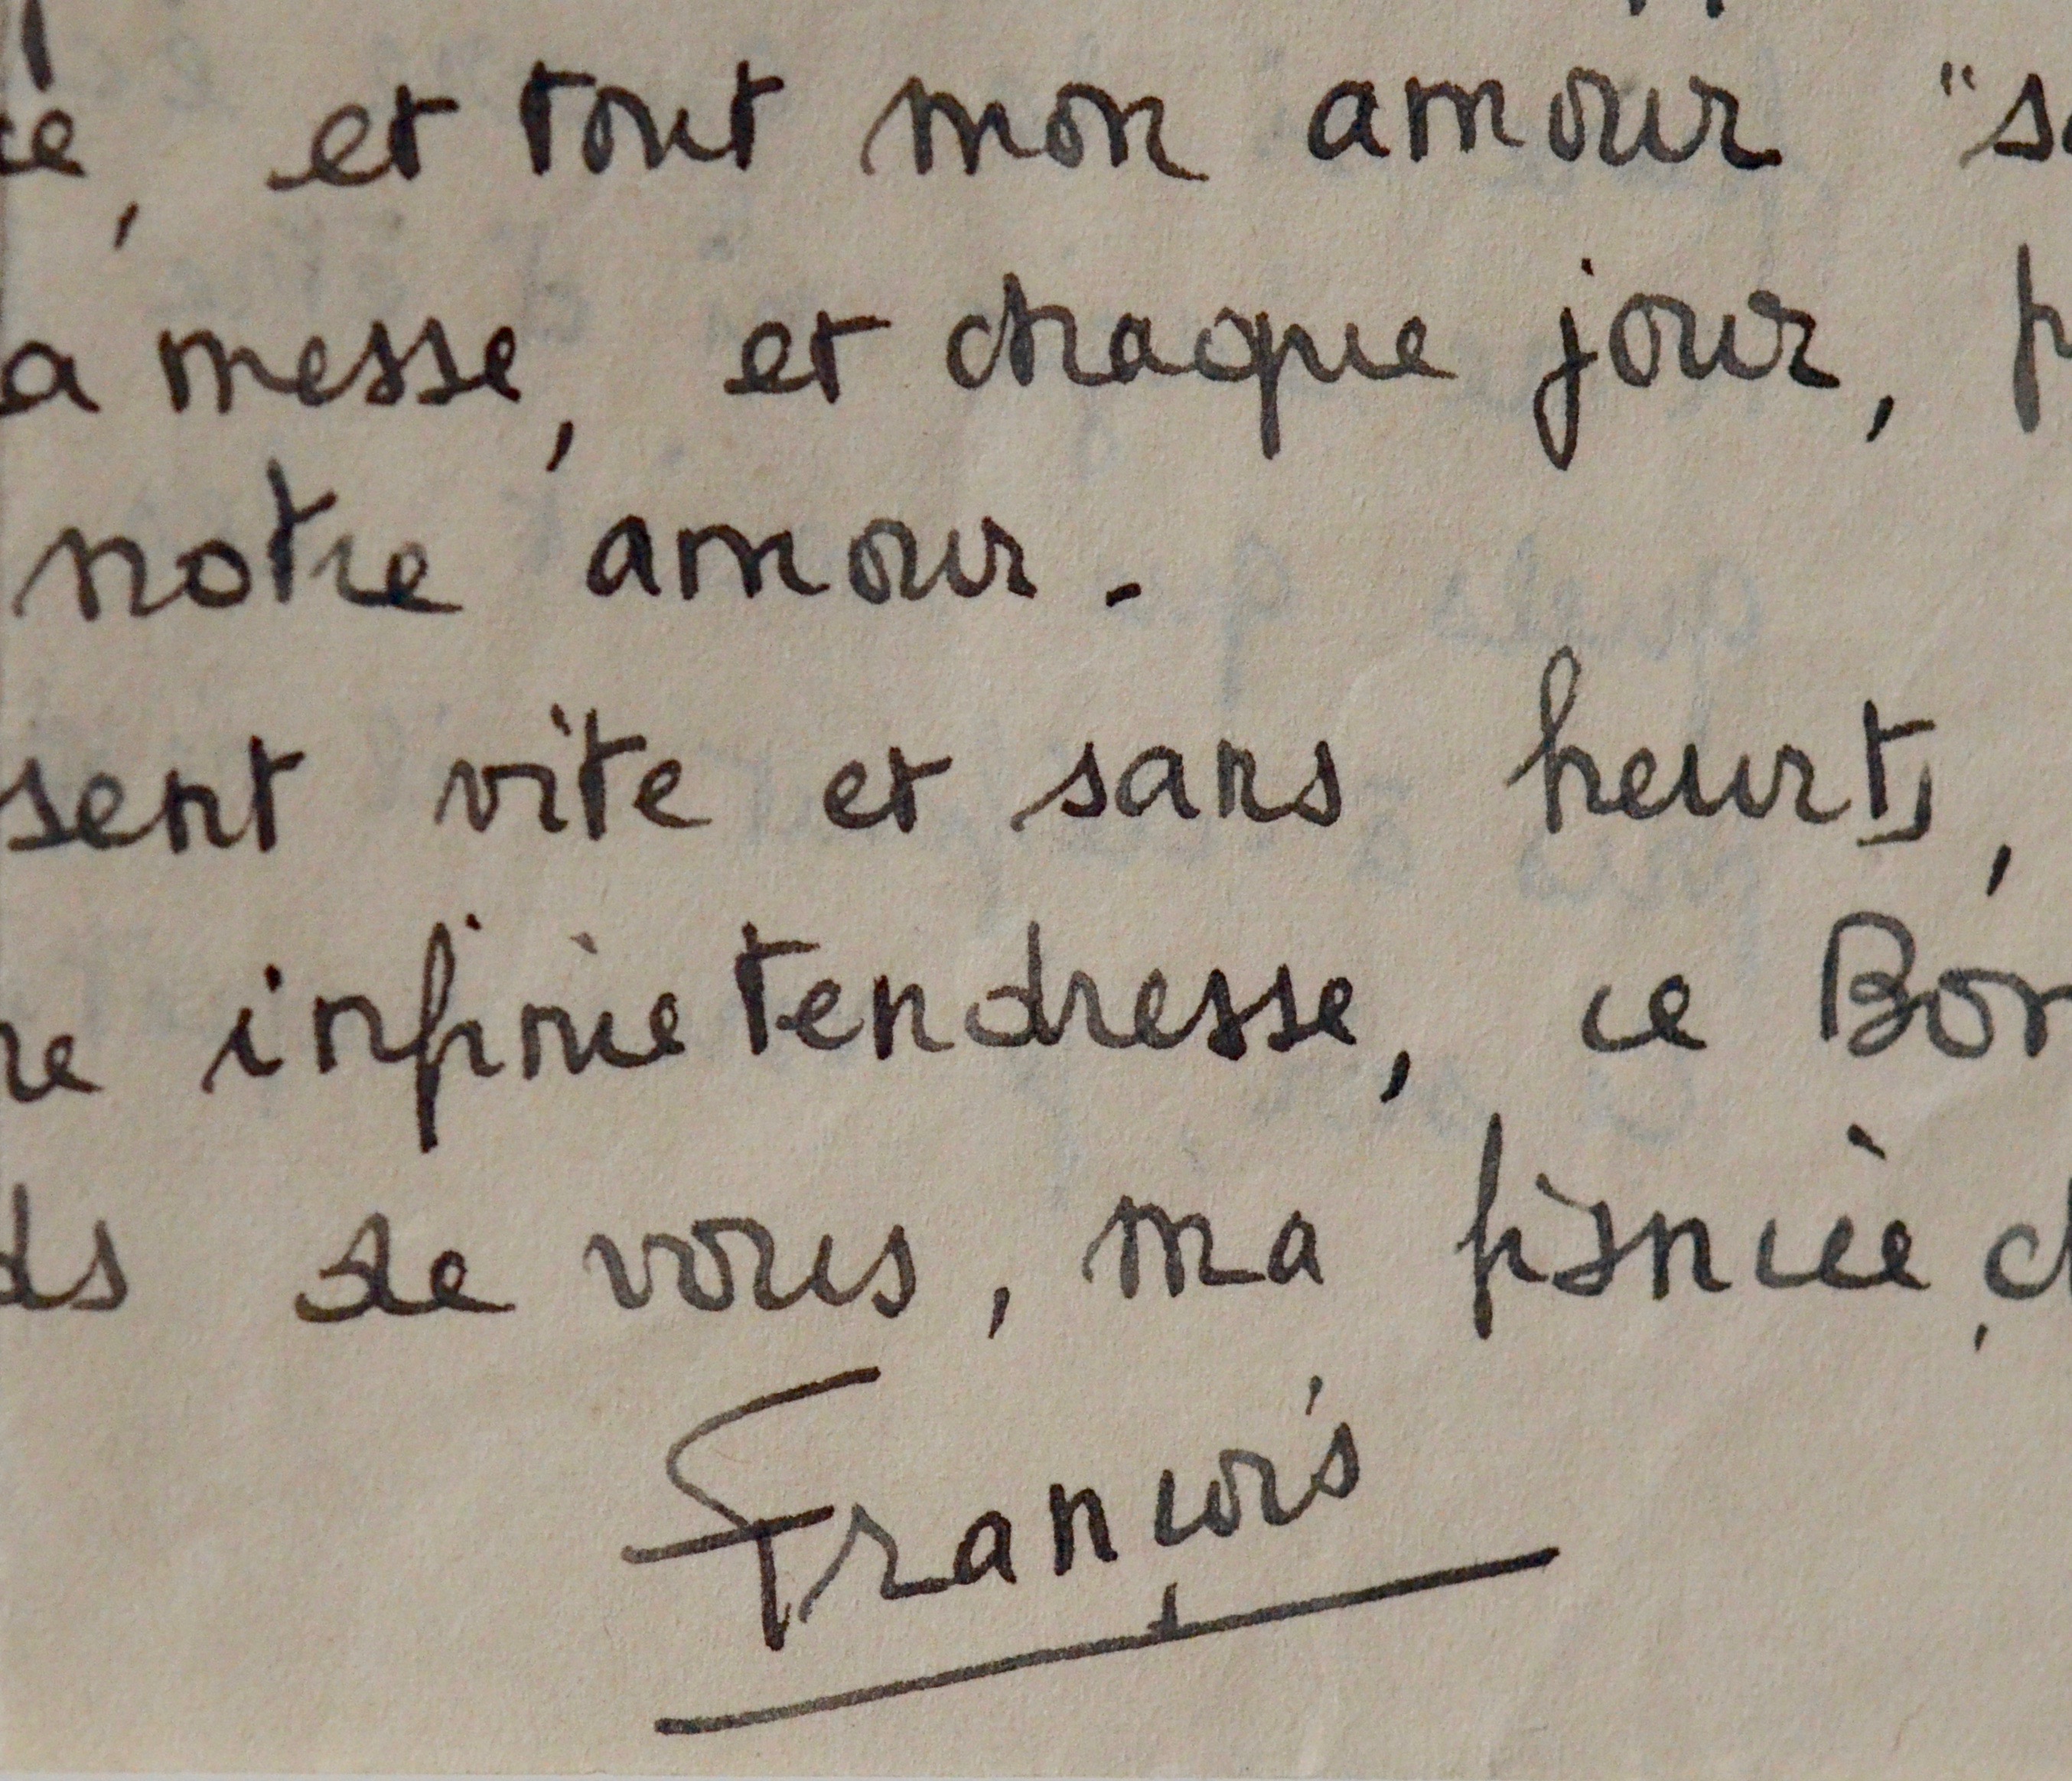 ce, et tout mon amour "s
a messe, et chaque jour, p
notre amour.
sent vite et sans heurts,
re infinie tendresse, ce Bon
ds de vous, ma fiancée, d
François